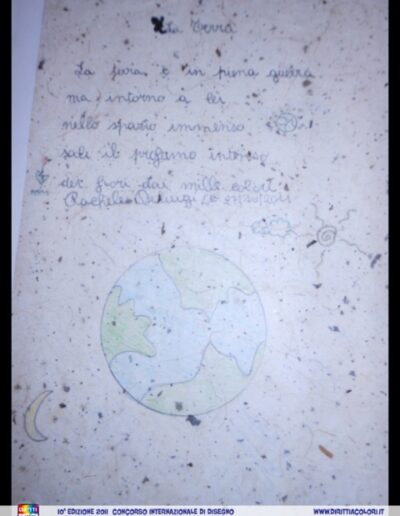 La Terra
La foria è in piena guerra
ma intorno a lei
nello spazio immenso
sale il profumo intenso
dei fiori dai mille colori
Rachele
10ª EDIZIONE 2011 CONCORSO INTERNAZIONALE DI DISEGNO
WWW.DIRITTIACOLORI.IT